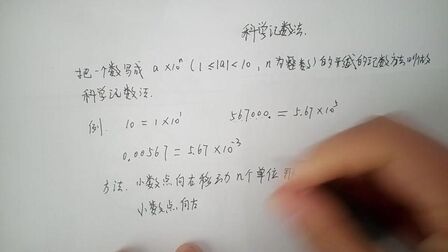 科学记数法.
把一个数写成 a×10ⁿ (1≤|a|<10, n为整数)的形式的记数方法叫做
科学记数法.
例. 10=1×10¹ 567000.=5.67×10⁵
0.00567=5.67×10⁻³
方法. 小数点向右移动n个单位
小数点向左